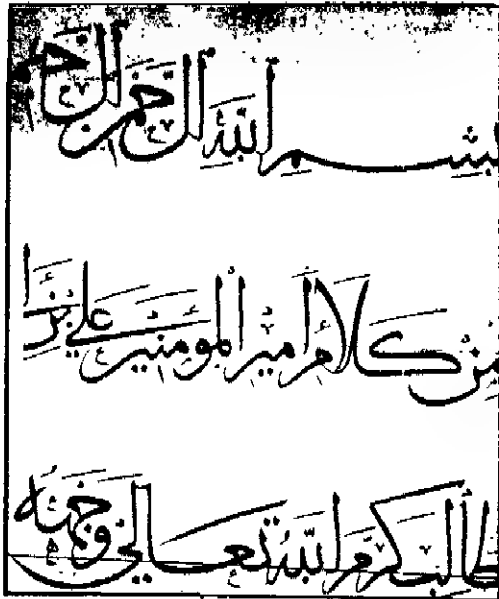 بسم الله الرحمن الرحيم
من كلام أمير المؤمنين علي بن ا
طالب كرم الله تعالى وجهه